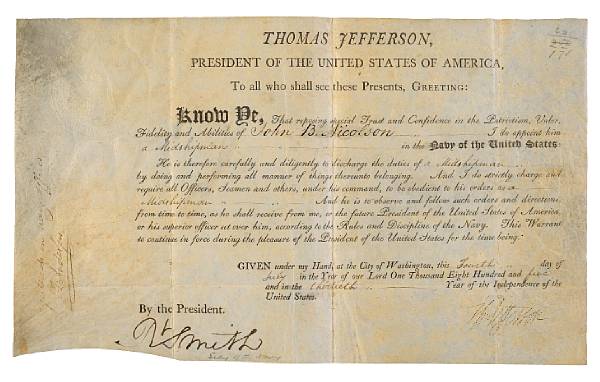 THOMAS JEFFERSON,
PRESIDENT OF THE UNITED STATES OF AMERICA,
To all who shall see these Presents, GREETING:
Know Ye, That reposing special Trust and Confidence in the Patriotism, Valor,
Fidelity and Abilities of John B. Nicolson I do appoint him
a Midshipman in the Navy of the United States:
He is therefore carefully and diligently to discharge the duties of a Midshipman
by doing and performing all manner of things thereunto belonging. And I do strictly charge and
require all Officers, Seamen and others, under his command, to be obedient to his orders as a
Midshipman And he is to observe and follow such orders and directions,
from time to time, as he shall receive from me, or the future President of the United States of America,
or his superior officer set over him, according to the Rules and Discipline of the Navy. This Warrant
to continue in force during the pleasure of the President of the United States for the time being.
GIVEN under my Hand, at the City of Washington, this Fourth day of
July in the Year of our Lord One Thousand Eight Hundred and five
and in the thirtieth Year of the Independence of the
United States.
Th Jefferson
By the President.
Rt Smith
Secy of the Navy